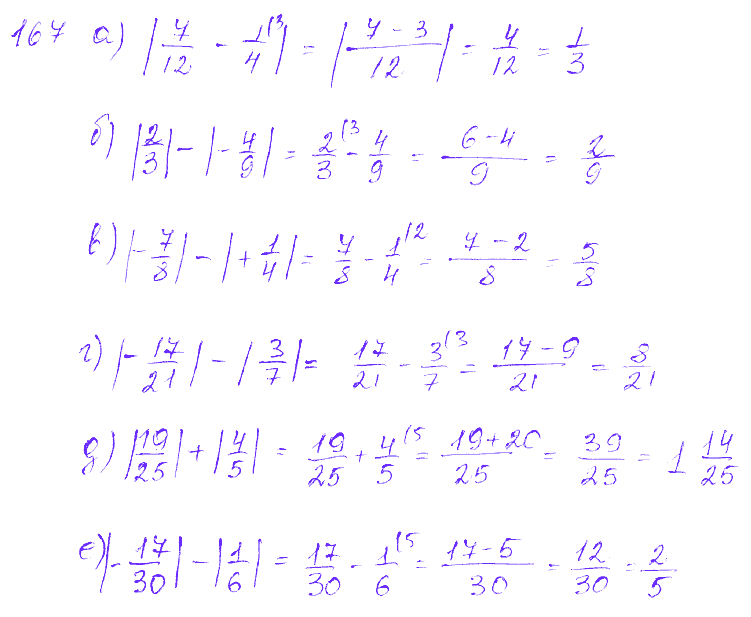 167 а) |7/12 - 1/4^(3| = |(7-3)/12| = 4/12 = 1/3
б) |2/3| - |-4/9| = 2/3^(3 - 4/9 = (6-4)/9 = 2/9
в) |-7/8| - |+1/4| = 7/8 - 1/4^(2 = (7-2)/8 = 5/8
г) |-17/21| - |3/7| = 17/21 - 3/7^(3 = (17-9)/21 = 8/21
д) |19/25| + |4/5| = 19/25 + 4/5^(5 = (19+20)/25 = 39/25 = 1 14/25
е) |-17/30| - |1/6| = 17/30 - 1/6^(5 = (17-5)/30 = 12/30 = 2/5